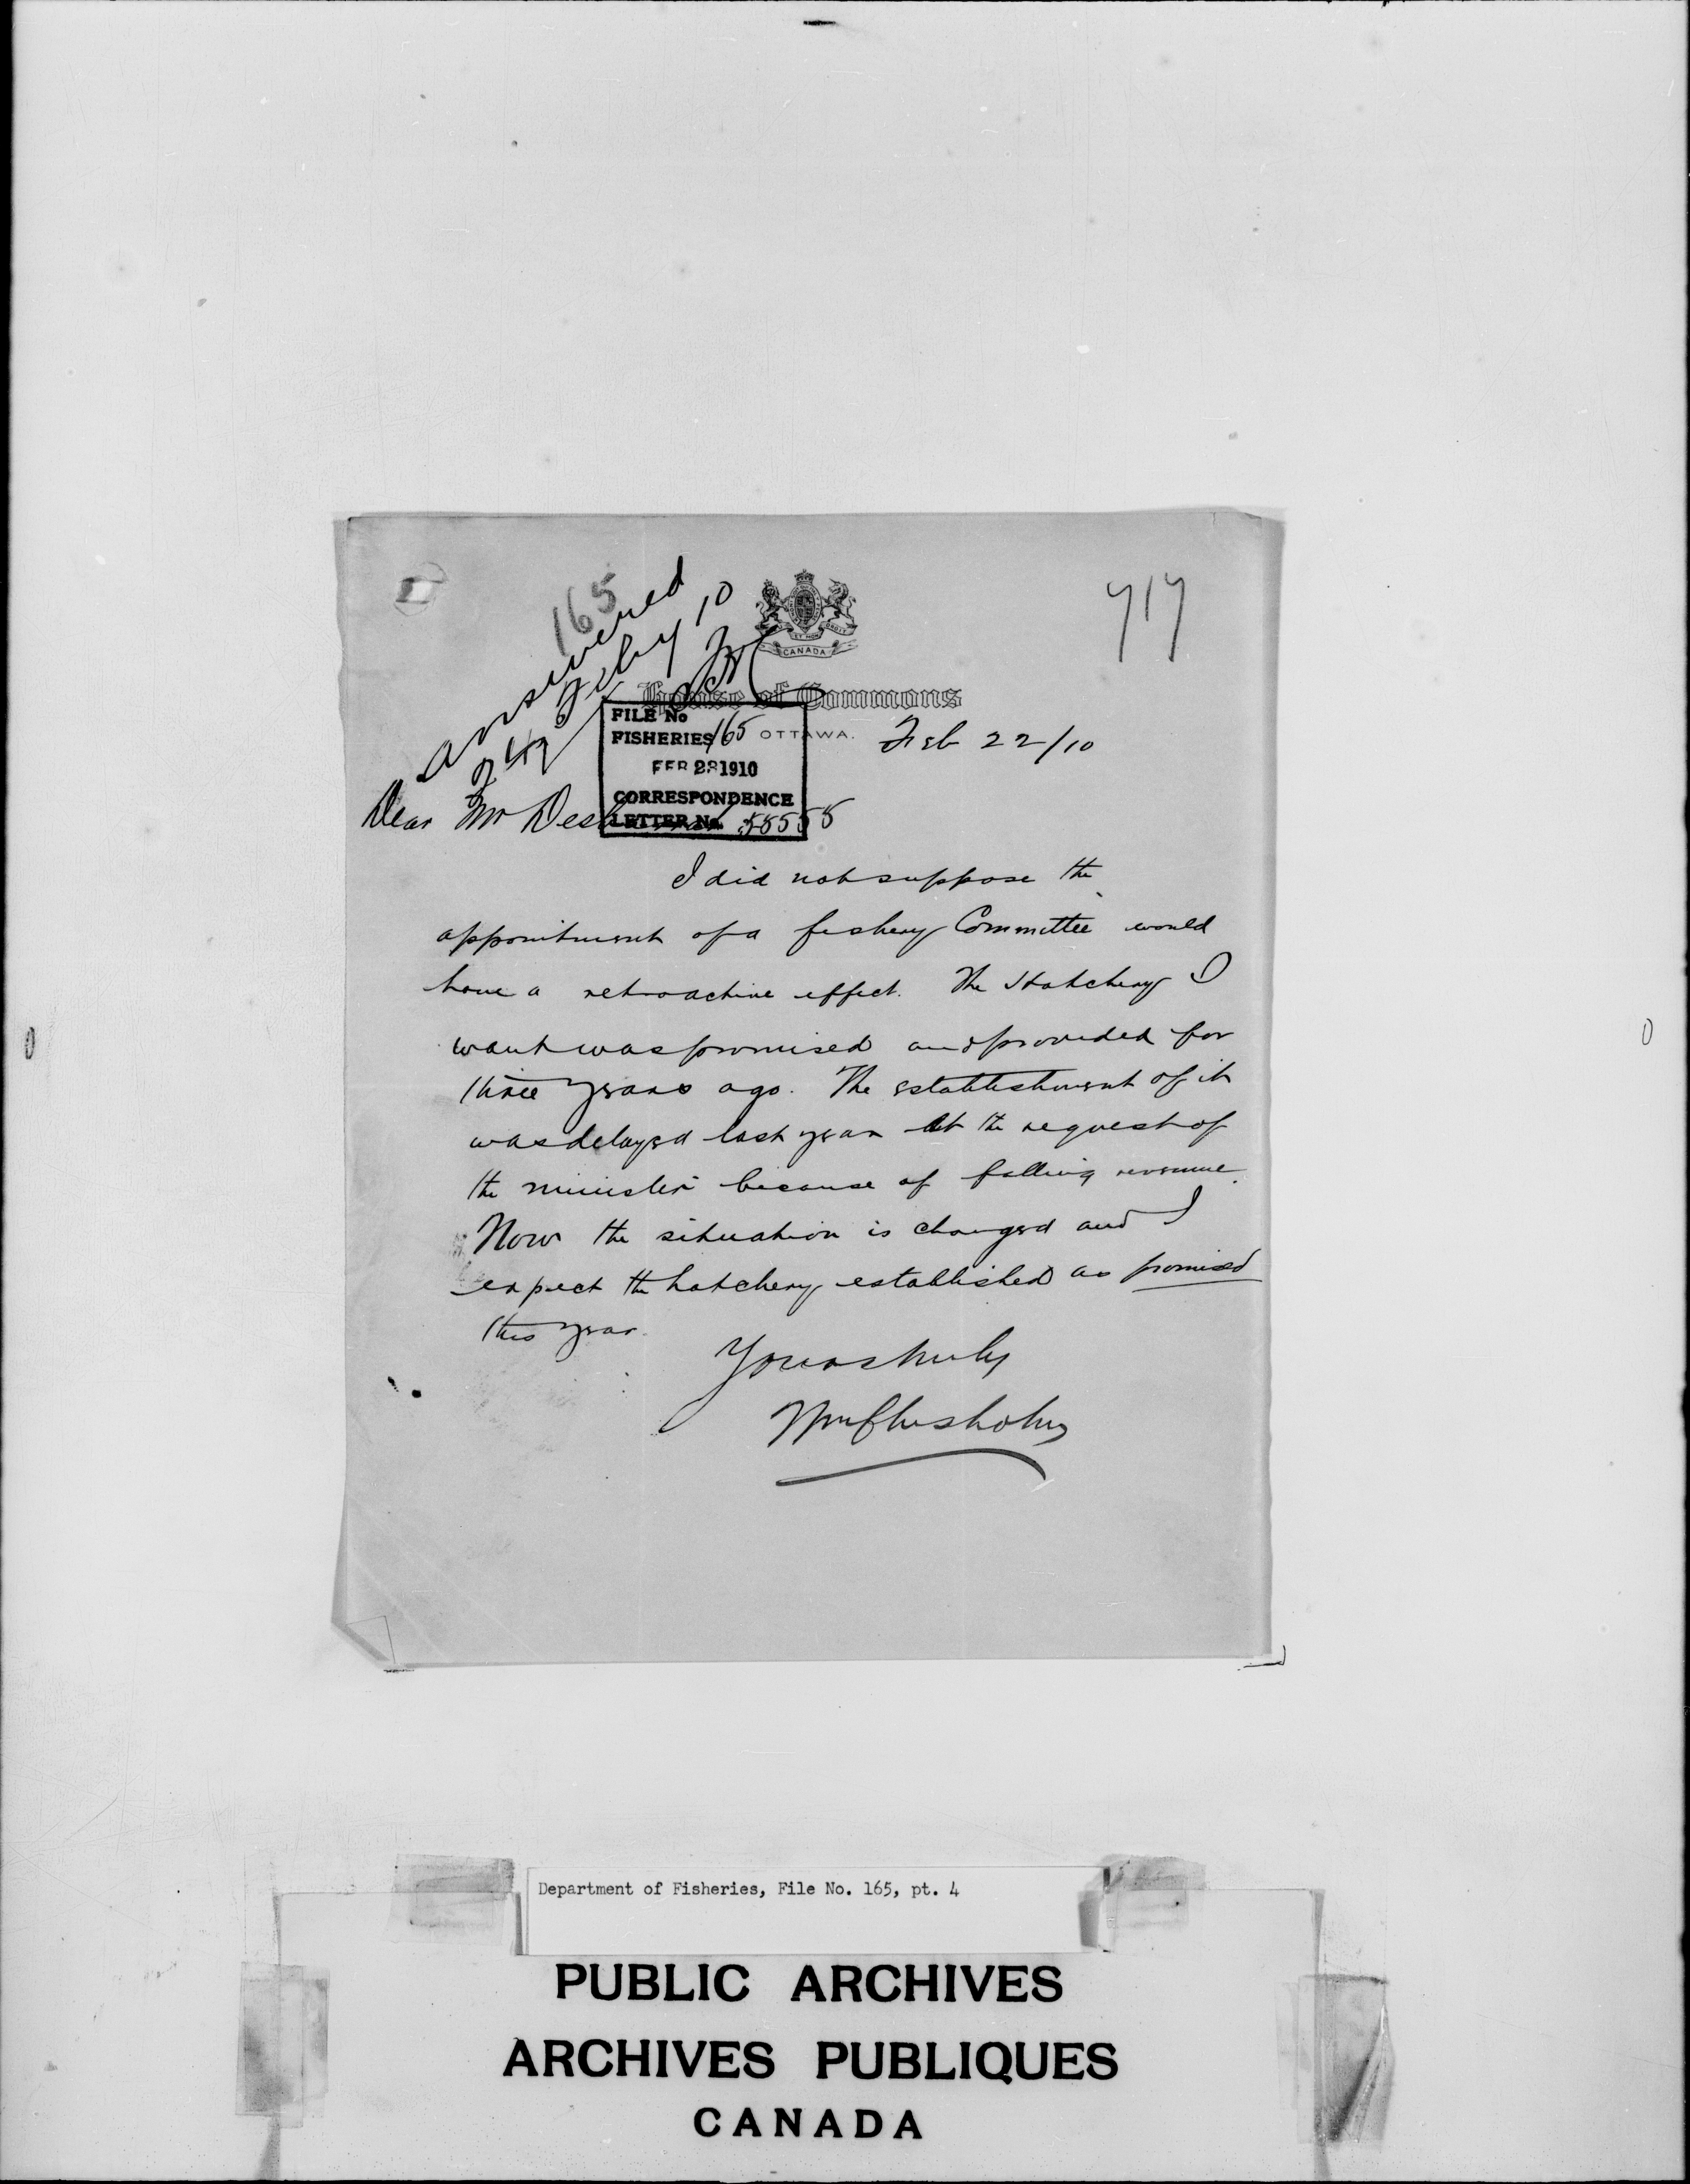 165
answered
24 Feby 10
717
CANADA
House of Commons
OTTAWA.
Feb 22/10
FILE No
FISHERIES 165
FEB 28 1910
CORRESPONDENCE
LETTER No. 58558
Dear Mr Des
I did not suppose the
appointment of a fishery Committee would
have a retroactive effect. The Hatchery I
want was promised and provided for
three years ago. The establishment of it
was delayed last year at the request of
the minister because of falling revenue.
Now the situation is changed and I
expect the hatchery established as promised
this year.
Yours truly
Wm Chisholm
Department of Fisheries, File No. 165, pt. 4
PUBLIC ARCHIVES
ARCHIVES PUBLIQUES
CANADA